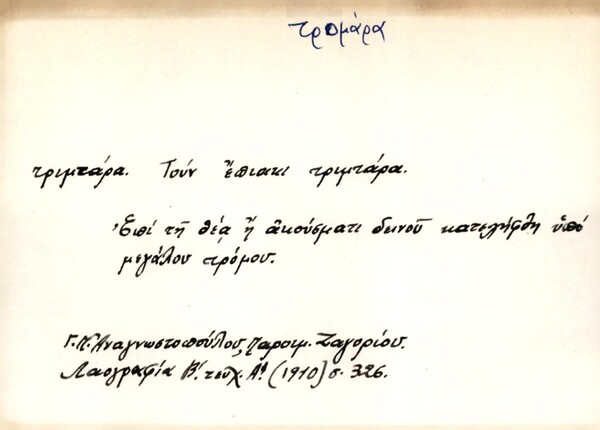 τρομάρα
τριμτάρα. Τούν ἔπιακι τριμτάρα.
Ἐπί τῇ θέᾳ ἤ ἀκούσματι δεινοῦ κατελήφθη ὑπό
μεγάλου τρόμου.
Γ. Π. Ἀναγνωστοπούλου, Παροιμ. Ζαγορίου.
Λαογραφία Β΄. τευχ. Α΄. (1910) σ. 326.